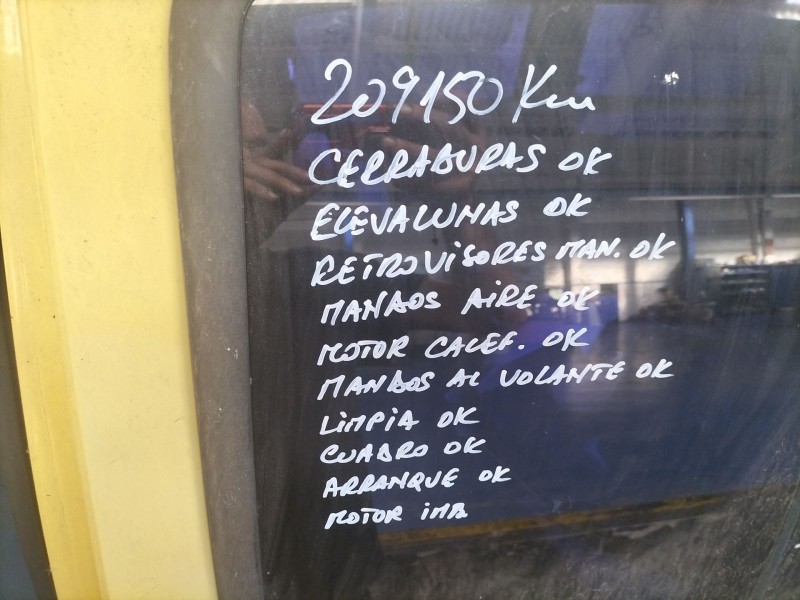 209150 Km
CERRADURAS OK
ELEVALUNAS OK
RETROVISORES MAN. OK
MANDOS AIRE OK
MOTOR CALEF. OK
MANDOS AL VOLANTE OK
LIMPIA OK
CUADRO OK
ARRANQUE OK
MOTOR